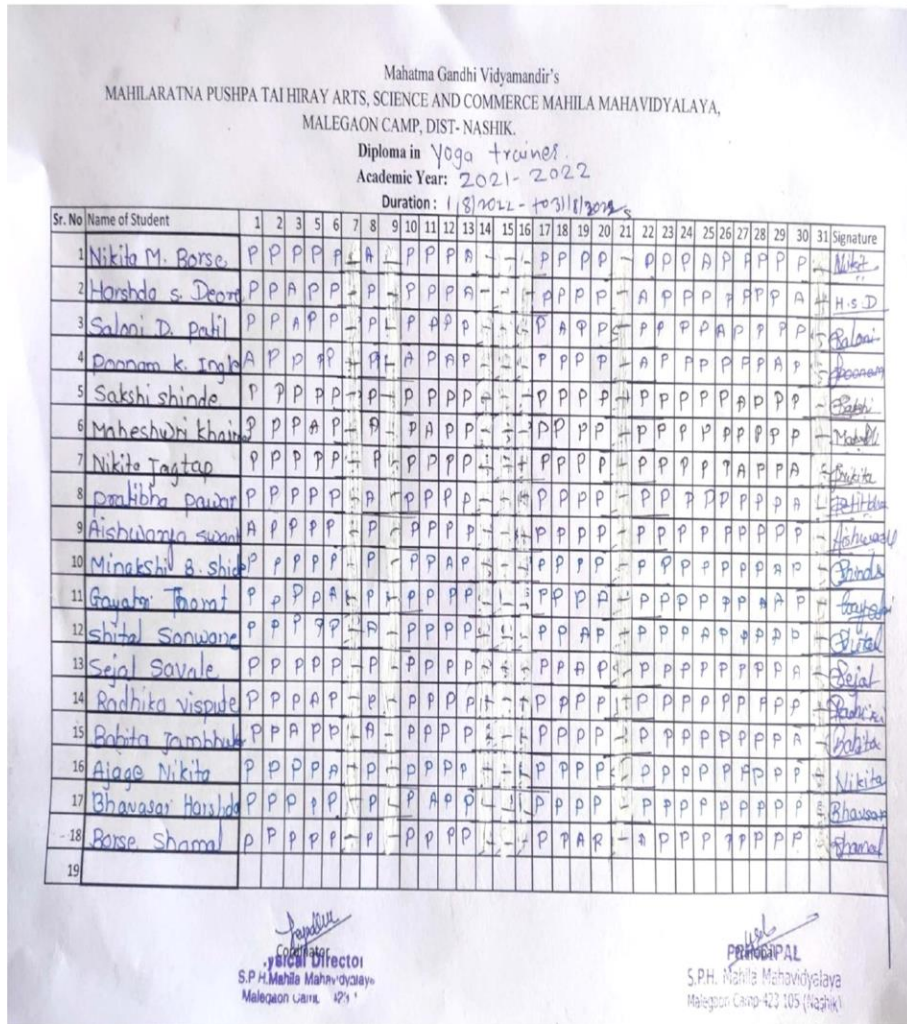 Mahatma Gandhi Vidyamandir's
MAHILARATNA PUSHPA TAI HIRAY ARTS, SCIENCE AND COMMERCE MAHILA MAHAVIDYALAYA,
MALEGAON CAMP, DIST- NASHIK.
Diploma in Yoga trainer.
Academic Year: 2021-2022
Duration : 1/8/2022 - to 31/8/2022
Sr. No Name of Student 1 2 3 5 6 7 8 9 10 11 12 13 14 15 16 17 18 19 20 21 22 23 24 25 26 27 28 29 30 31 Signature
1 Nikita M. Borse P P P P A - A - P P P A - - - P P P P - P P P A P P P P P -
2 Harshda S. Deore P P A P P - P - P P P A - - - P P P P - A P P P P P P P A H.S.D
3 Saloni D. Patil P P A P P - P - P A P P - - - P A P P - P P P P A P P P P - Saloni
4 Poonam K. Ingle A P P P P - P - A P A P - - - P P P P - A P A P P P P A P Poonam
5 Sakshi shinde P P P P P - P - P P P P - - - P P P P - P P P P P A P P P - Sakshi
6 Maheshwri P P P A P - A - P A P P - - - P P P P - P P P P P P P P P -
7 Nikita Jagtap P P P P P - P - P P P P - - - P P P P - P P P P P A P P A -
8 Pratibha Pawar P P P P P - A - P P P P - - - P P P P - P P P P P P P P A -
9 Aishwarya A P P P P - P - P P P P - - - P P P P - P P P P P P P P P -
10 Minakshi B. P P P P P - P - P P A P - - - P P P P - P P P P P P P A P -
11 Gayatri Thorat P P P P A - P - P P P P - - - P P P A - P P P P P P A A P -
12 Shital Sonwane P P P P P - A - P P P P - - - P P A P - P P P A P P P P P - Shital
13 Sejal Savale P P P P P - P - P P P P - - - P P A P - P P P P P P P P A - Sejal
14 Radhika Vispute P P P A P - P - P P P P - - - P P P P - P P P P P P A P P -
15 Babita P P A P P - A - P P P P - - - P P P P - P P P P P P P P A - Babita
16 Ajage Nikita P P P P A - P - P P P P - - - P P P P - P P P P P A P P P - Nikita
17 Bhavasar Harshda P P P P P - P - P A P P - - - P P P P - P P P P P P P P P - Bhavsar
18 Borse Shamal P P P P P - P - P P P P - - - P P A - A P P P P P P P P - Shamal
19
Director
S.P.H. Mahila Mahavidyalaya
Malegaon Camp
PRINCIPAL
S.P.H. Mahila Mahavidyalaya
Malegaon Camp-423 105 (Nashik)